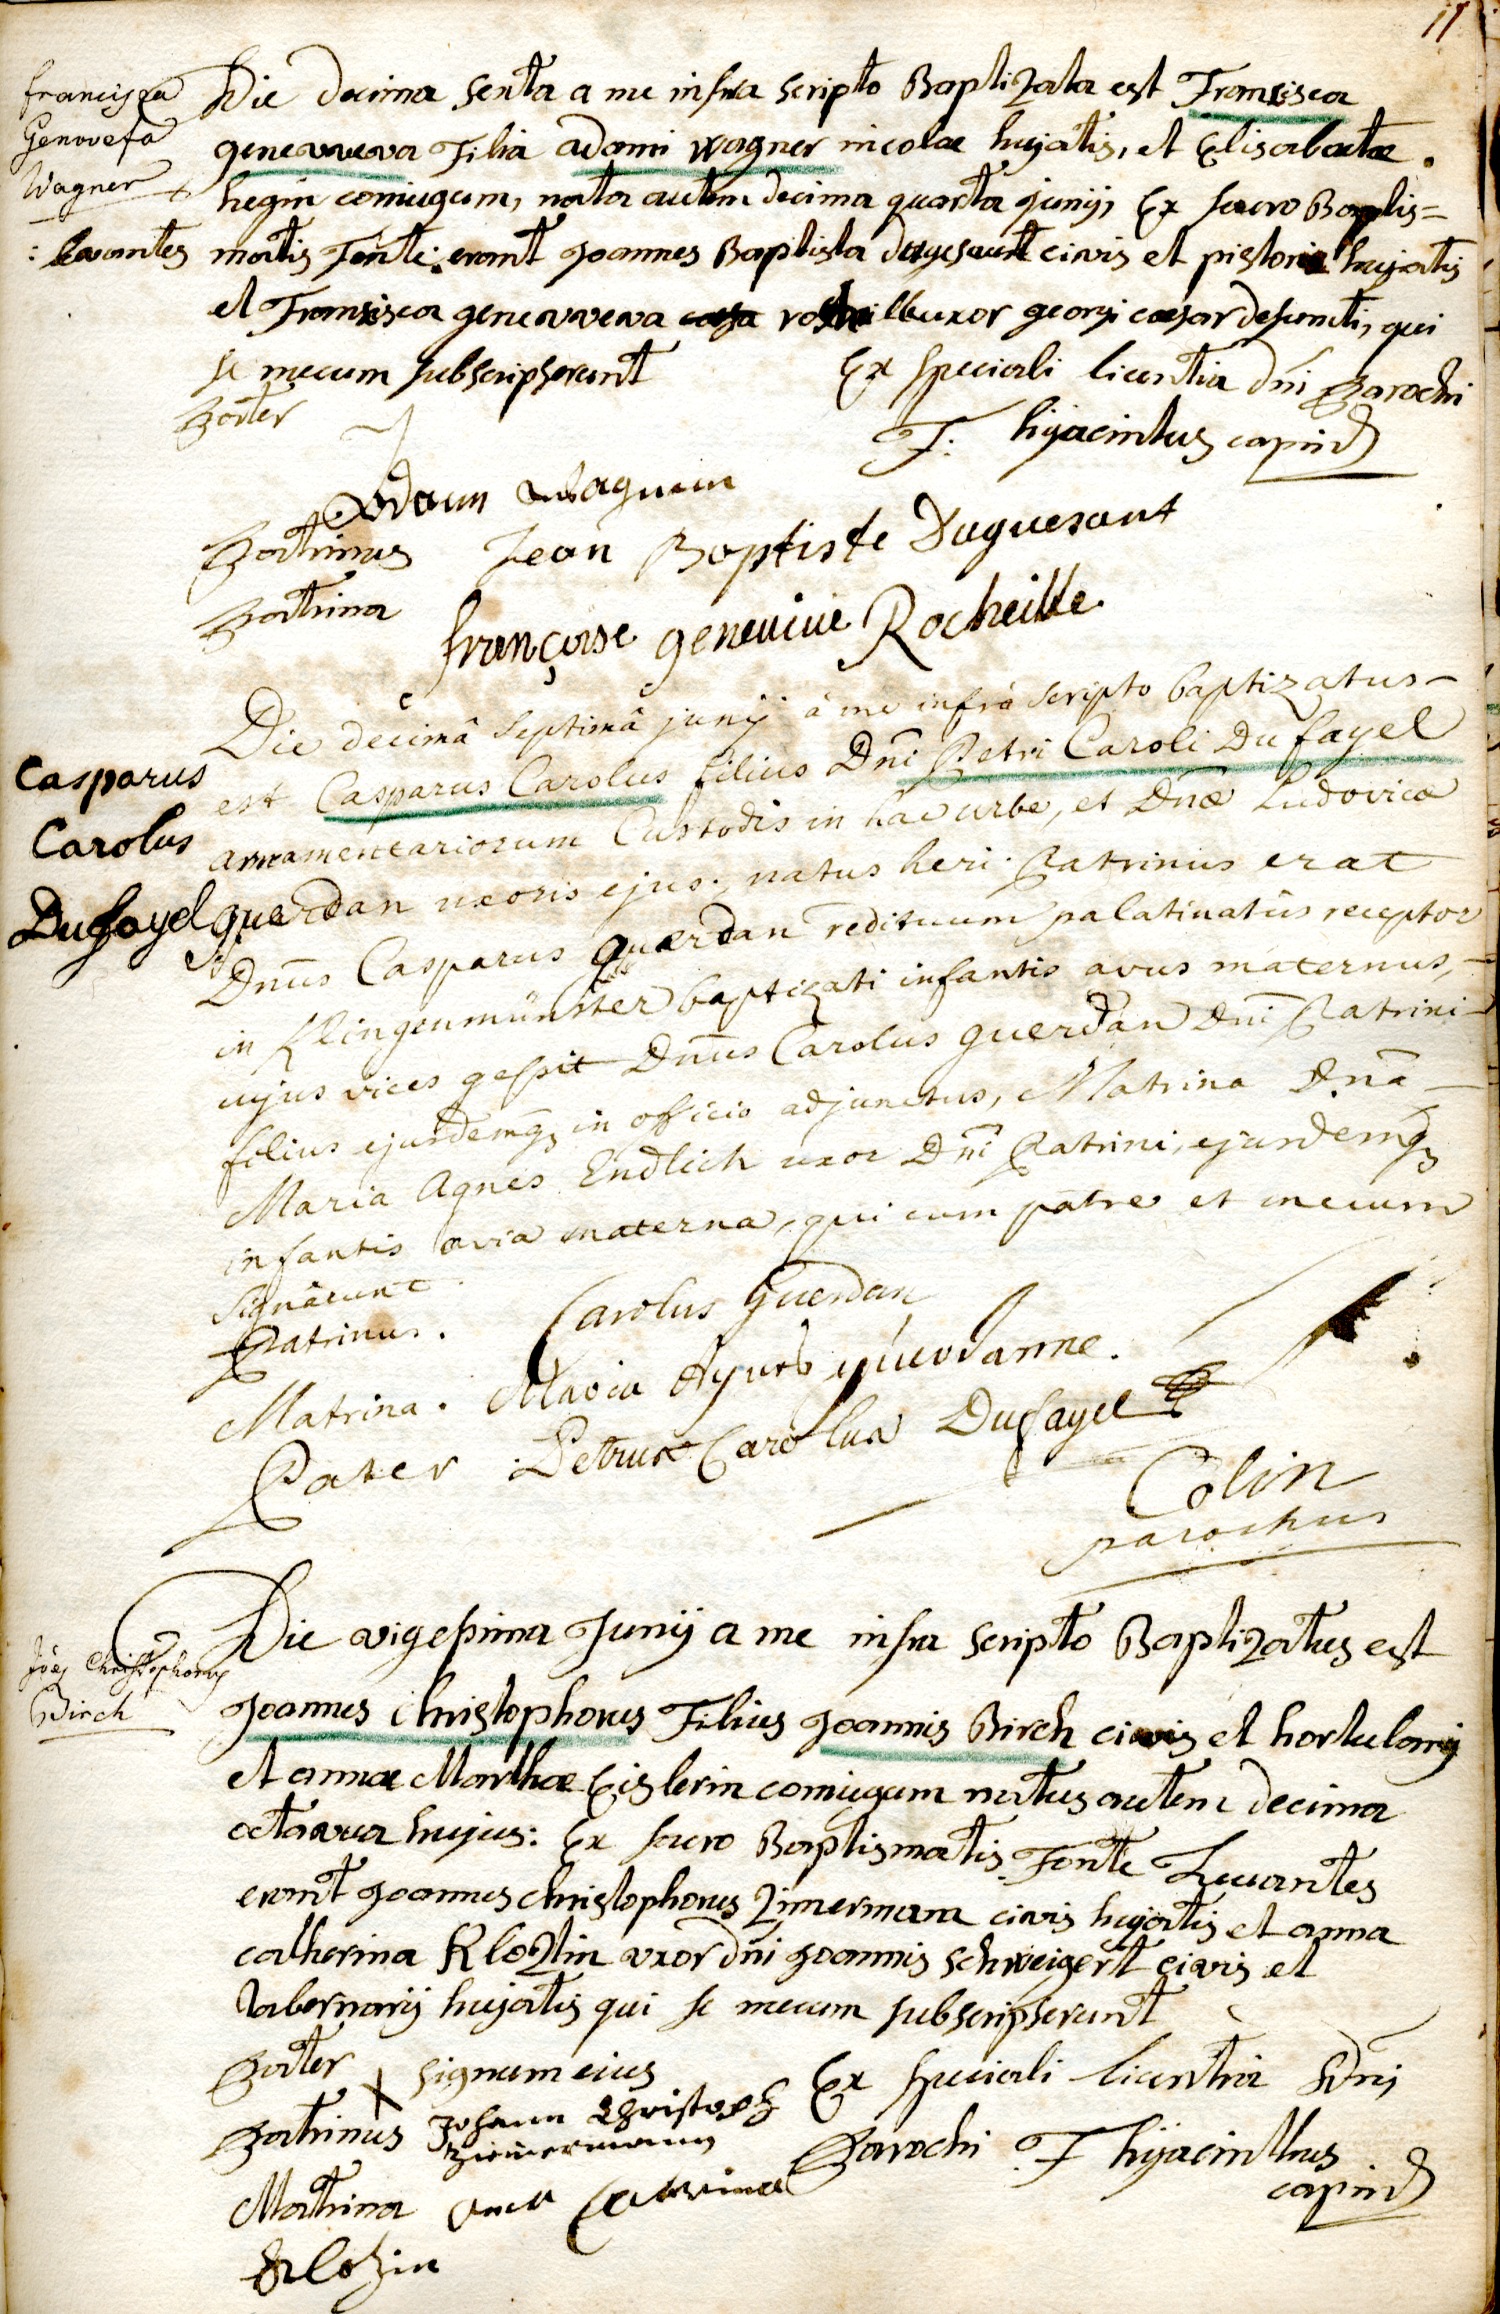 11
Francisca
Genovefa
Wagner
Die decima sexta a me infra scripto Baptizata est Francisca
genevveva Filia adami wagner incolae hujatis, et Elisabatae
hegin coniugum, nata autem decima quarta junij, Ex sacro Baptis=
: levantes matis Fonte: erant Joannes Baptista dugesant civis et pistoris hujatis
et Francisca genevveva uxor georgi caesar defuncti, qui
se mecum subscripserunt
Ex speciali licentia dni Parochi
Pater
F: hijacintus capind
Adam Wagner
Patrinus Jean Baptiste Duguesant
Patrina françoise genevive Rocheille
Die decimâ septimâ junij à me infrà scripto baptizatus
est Casparus Carolus filius Dni Petri Caroli Dufayel
Casparus
Carolus
Dufayel
armamentariorum Custodis in hac urbe, et Dnae Ludovicae
querdan uxoris ejus, natus heri. Patrinus erat
Dnus Casparus querdan redituum palatinatûs receptor
in Klingenmünster baptizati infantis avus maternus,
cujus vices gessit Dnus Carolus guerdan Dni Patrini
filius ejusdemq in officio adjunctus, Matrina Dna
Maria Agnes Endlich uxor Dni Patrini, ejusdemq
infantis avia materna, qui cum patre et mecum
signârunt
Patrinus. Carolus Guerdan
Matrina. Maria Agnes querdanne.
Pater Petrus Carolus Dufayel
Colin
parochus
Joes Christophorus
Birch
Die vigesima Junij a me infra scripto Baptizatus est
Joannes christophorus Filius Joannis Birch civis et hortulanij
et annae Marthae Eislerin coniugum natus autem decima
octavva hujus: Ex sacro Baptismatis Fonte Levantes
erant Joannes christophorus Zimermann civis hujatis et anna
catherina Klozlin uxor dni Joannis schweigert civis et
tabernarij hujatis qui se mecum subscripserunt
Pater X signum eius
Ex speciali licentia Dni
Patrinus Johann Christoph
Zimermann
Parochi F hijacinthus
capind
Matrina Ana Catarina
Klozin